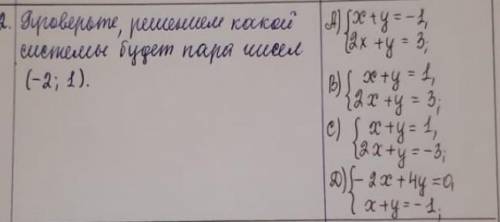 2. Проверьте, решением какой
системы будет пара чисел
(-2; 1).
A) { x+y = -1,
2x + y = 3;
B) { x+y = 1,
2x + y = 3;
C) { x+y = 1,
2x+y = -3;
D) { -2x+4y = 0,
x+y = -1;